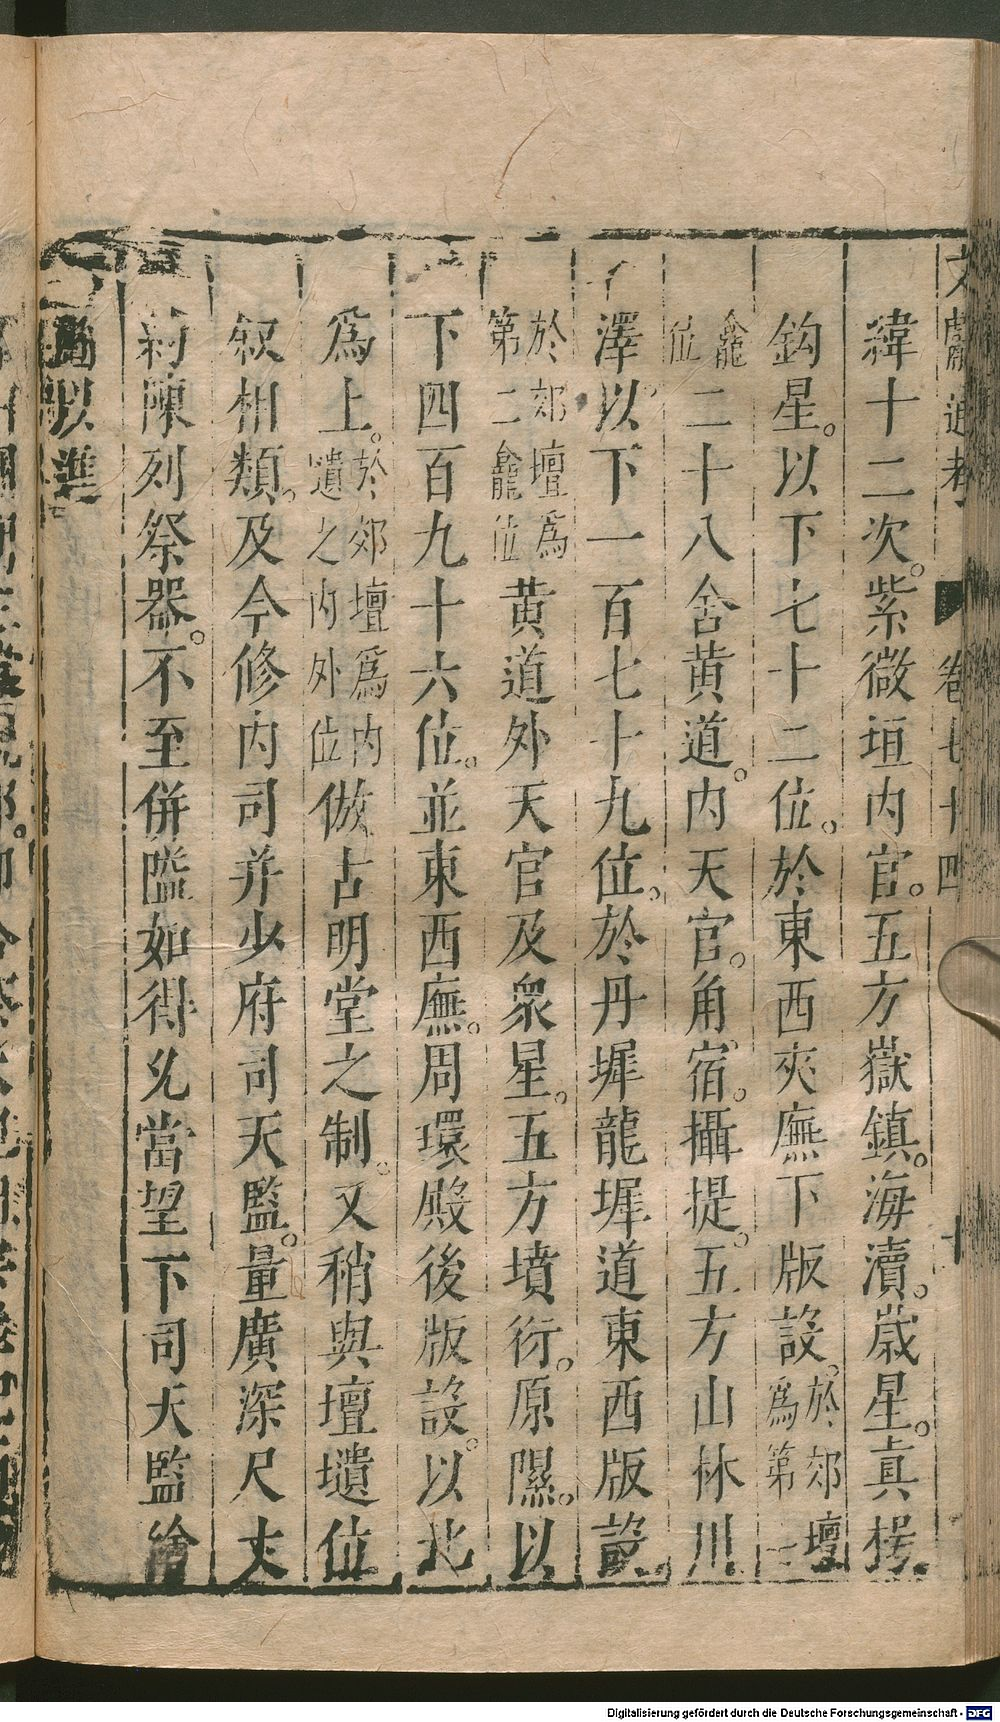 文獻通考 卷七十四 十
緯十二次。紫微垣内官。五方嶽鎮。海瀆。歳星。真枵。
鈎星。以下七十二位。於東西夾廡下版設。於郊壇爲第三
龕位二十八舍黄道。内天官。角宿。攝提。五方山林川
澤。以下一百七十九位。於丹墀龍墀道東西版設。
於郊壇爲第二龕位黄道外天官及衆星。五方墳衍。原隰。以
下四百九十六位。並東西廡。周環殿後版設。以北
爲上。於郊壇爲内壝之内外位倣古明堂之制。又稍與壇壝位
叙相類。及今修内司并少府司天監。量廣深尺丈
約陳列祭器。不至併隘如得允當望下司天監繪
圖以準
Digitalisierung gefördert durch die Deutsche Forschungsgemeinschaft - DFG